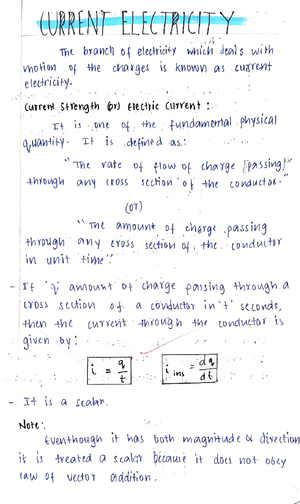 CURRENT ELECTRICITY
The branch of electricity which deals with
motion of the charges is known as current
electricity.
Current Strength (or) Electric Current :
It is one of the fundamental physical
quantity. It is defined as:
"The rate of flow of charge [passing]
through any cross section of the conductor."
(or)
"The amount of charge passing
through any cross section of the conductor
in unit time".
- If 'q' amount of charge passing through a
cross section of a conductor in 't' seconds,
then the current through the conductor is
given by :
i = q/t    i ins = dq/dt
- It is a scalar.
Note:.
Eventhough it has both magnitude & direction
it is treated a scalar because it does not obey
law of vector addition.